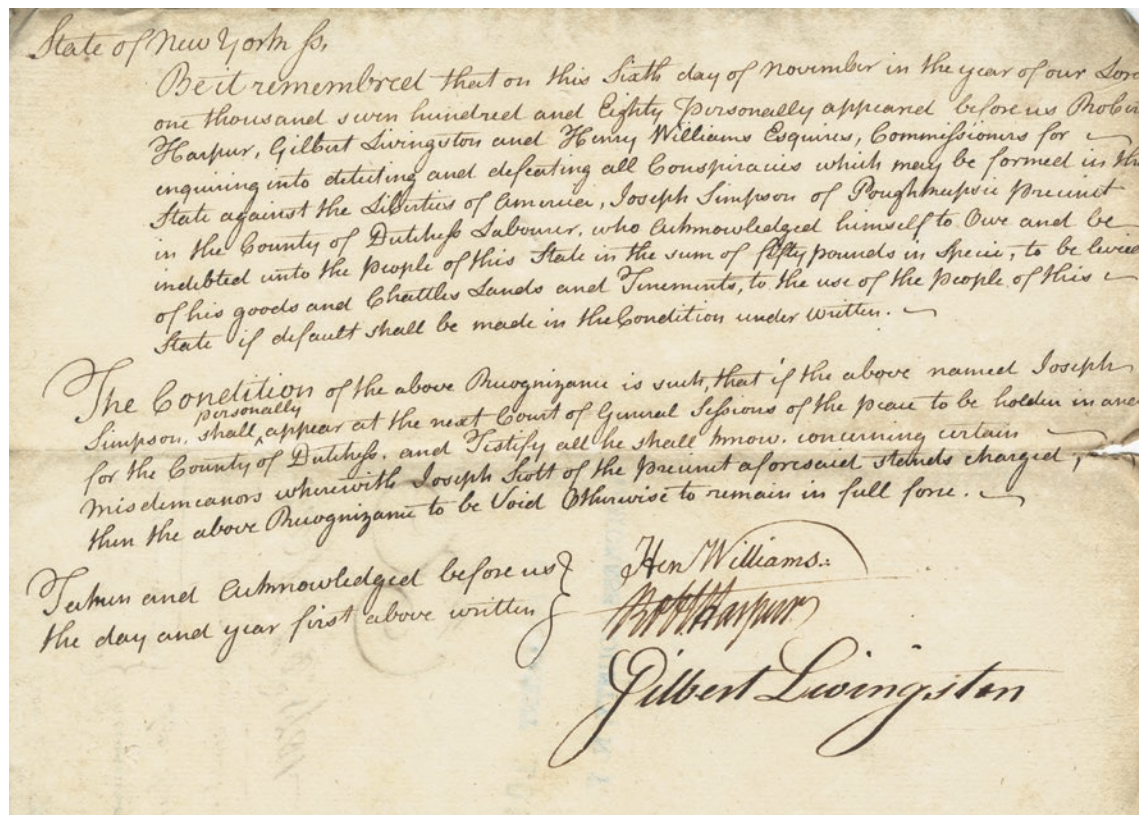 State of New York ss.
Be it remembred that on this Sixth day of November in the year of our Lord
one thousand seven hundred and Eighty Personally appeared before us Robert
Harpur, Gilbert Livingston and Henry Williams Esquires, Commissioners for
enquiring into detecting and defeating all Conspiracies which may be formed in this
State against the Liberties of America, Joseph Simpson of Poughkeepsie Precinct
in the County of Dutchess Labourer, who Acknowledged himself to Owe and be
indebted unto the People of this State in the sum of fifty pounds in Specie, to be levied
of his goods and Chattles Lands and Tenements, to the use of the People of this
State if default shall be made in the Condition under written.
The Condition of the above Recognizance is such, that if the above named Joseph
Simpson, shall personally appear at the next Court of General Sessions of the Peace to be holden in and
for the County of Dutchess. and Testify all he shall know. concerning certain
Misdemeanors wherewith Joseph Scott of the Precinct aforesaid stands charged,
then the above Recognizance to be Void Otherwise to remain in full force.
Taken and Acknowledged before us
the day and year first above written
Hen Williams.
Robt Harpur
Gilbert Livingston